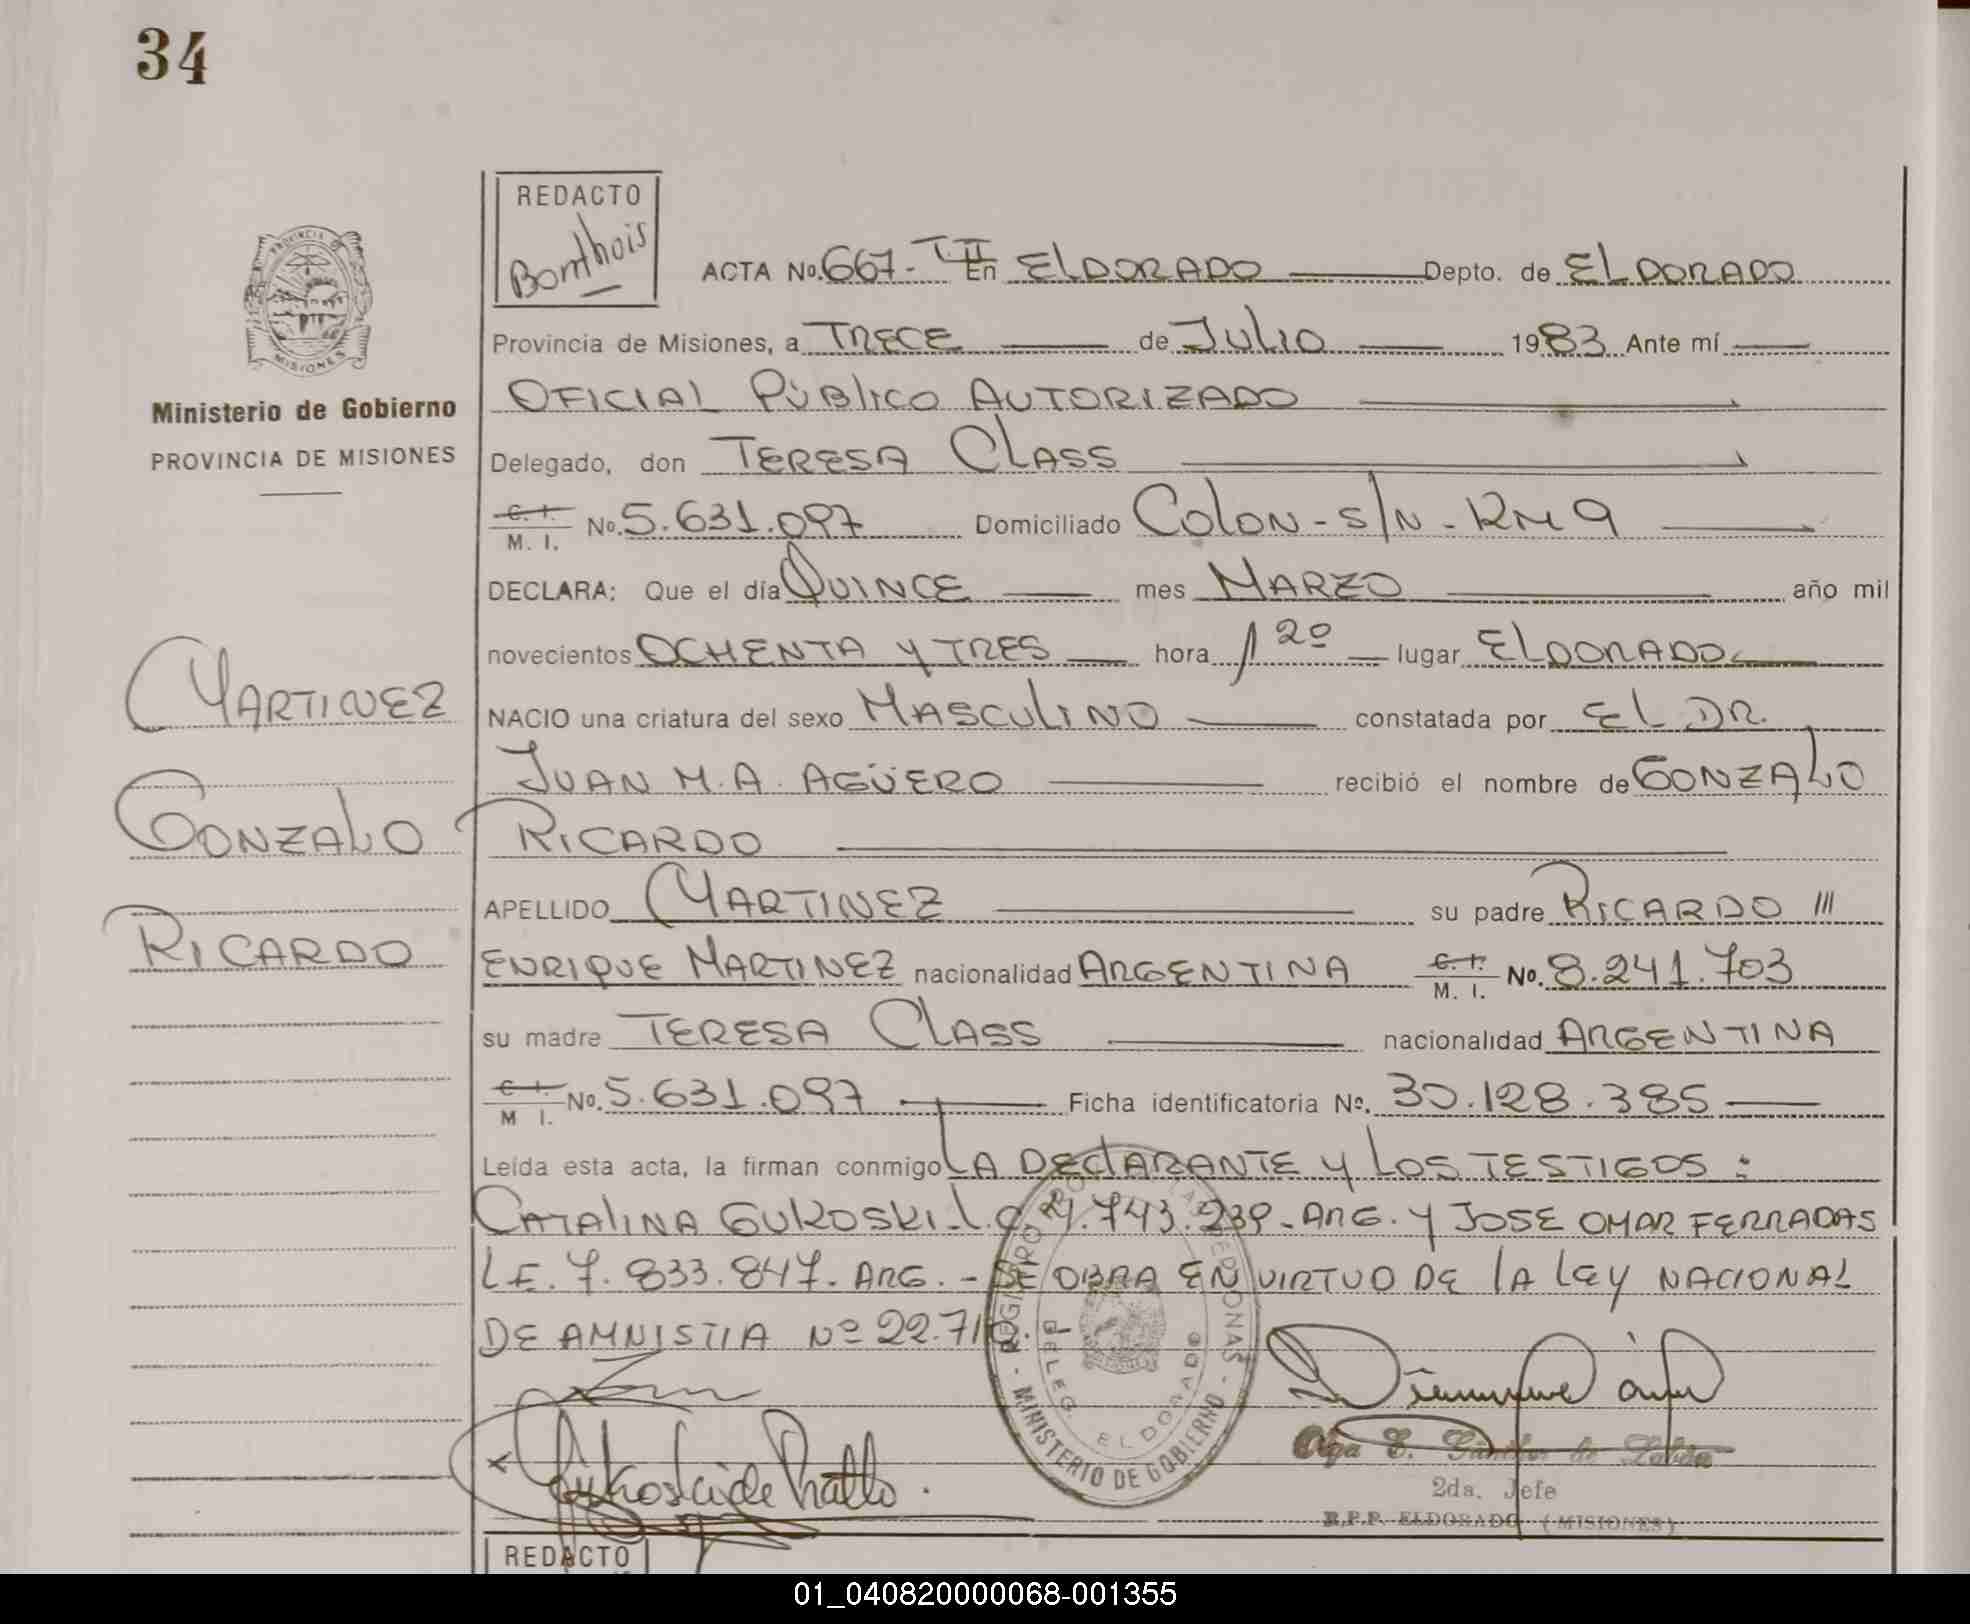 34
REDACTO
Bonthois
PROVINCIA DE
MISIONES
Ministerio de Gobierno
PROVINCIA DE MISIONES
ACTA No. 667- T II En ELDORADO Depto. de ELDORADO
Provincia de Misiones, a TRECE de JULIO 1983 Ante mí
OFICIAL PÚBLICO AUTORIZADO
Delegado, don TERESA CLASS
C. I. M. I. No. 5.631.097 Domiciliado COLON - S/N - KM 9
DECLARA: Que el día QUINCE mes MARZO año mil
novecientos OCHENTA Y TRES hora 1 20 lugar ELDORADO
NACIO una criatura del sexo MASCULINO constatada por EL DR.
JUAN M.A. AGÜERO recibió el nombre de GONZALO
RICARDO
APELLIDO MARTINEZ su padre RICARDO
ENRIQUE MARTINEZ nacionalidad ARGENTINA C. I. M. I. No. 8.241.703
su madre TERESA CLASS nacionalidad ARGENTINA
C. I. M. I. No. 5.631.097 Ficha identificatoria No. 30.128.385
Leída esta acta, la firman conmigo LA DECLARANTE Y LOS TESTIGOS:
CATALINA GUKOSKI L.C. 4.743.239 - ARG. Y JOSE OMAR FERRADAS
L.E. 7.833.847. ARG. - SE OBRA EN VIRTUD DE LA LEY NACIONAL
DE AMNISTIA Nº 22.710.
MARTINEZ
GONZALO
RICARDO
DELEG. ELDORADO
MINISTERIO DE GOBIERNO
Olga E. Sánchez de
2da. Jefe
R.P.P. ELDORADO (MISIONES)
REDACTO
01_040820000068-001355